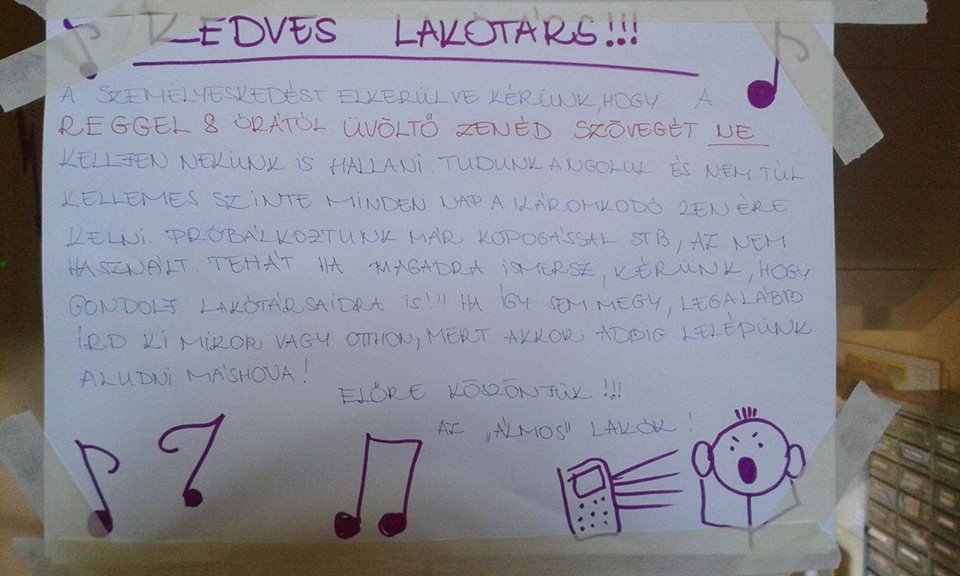 KEDVES LAKÓTÁRS!!!
A SZEMÉLYESKEDÉST ELKERÜLVE KÉRÜNK, HOGY A
REGGEL 8 ÓRÁTÓL ÜVÖLTŐ ZENÉD SZÖVEGÉT NE
KELLJEN NEKÜNK IS HALLANI. TUDUNK ANGOLUL ÉS NEM TÚL
KELLEMES SZINTE MINDEN NAP A KÁROMKODÓ ZENÉRE
KELNI. PRÓBÁLKOZTUNK MÁR KOPOGÁSSAL STB, AZ NEM
HASZNÁLT. TEHÁT HA MAGADRA ISMERSZ, KÉRÜNK, HOGY
GONDOLJ LAKÓTÁRSAIDRA IS!!! HA ÍGY SEM MEGY, LEGALÁBB
ÍRD KI MIKOR VAGY OTTHON, MERT AKKOR ADDIG LELÉPÜNK
ALUDNI MÁSHOVA!
ELŐRE KÖSZÖNJÜK!!!
AZ „ÁLMOS" LAKÓK!